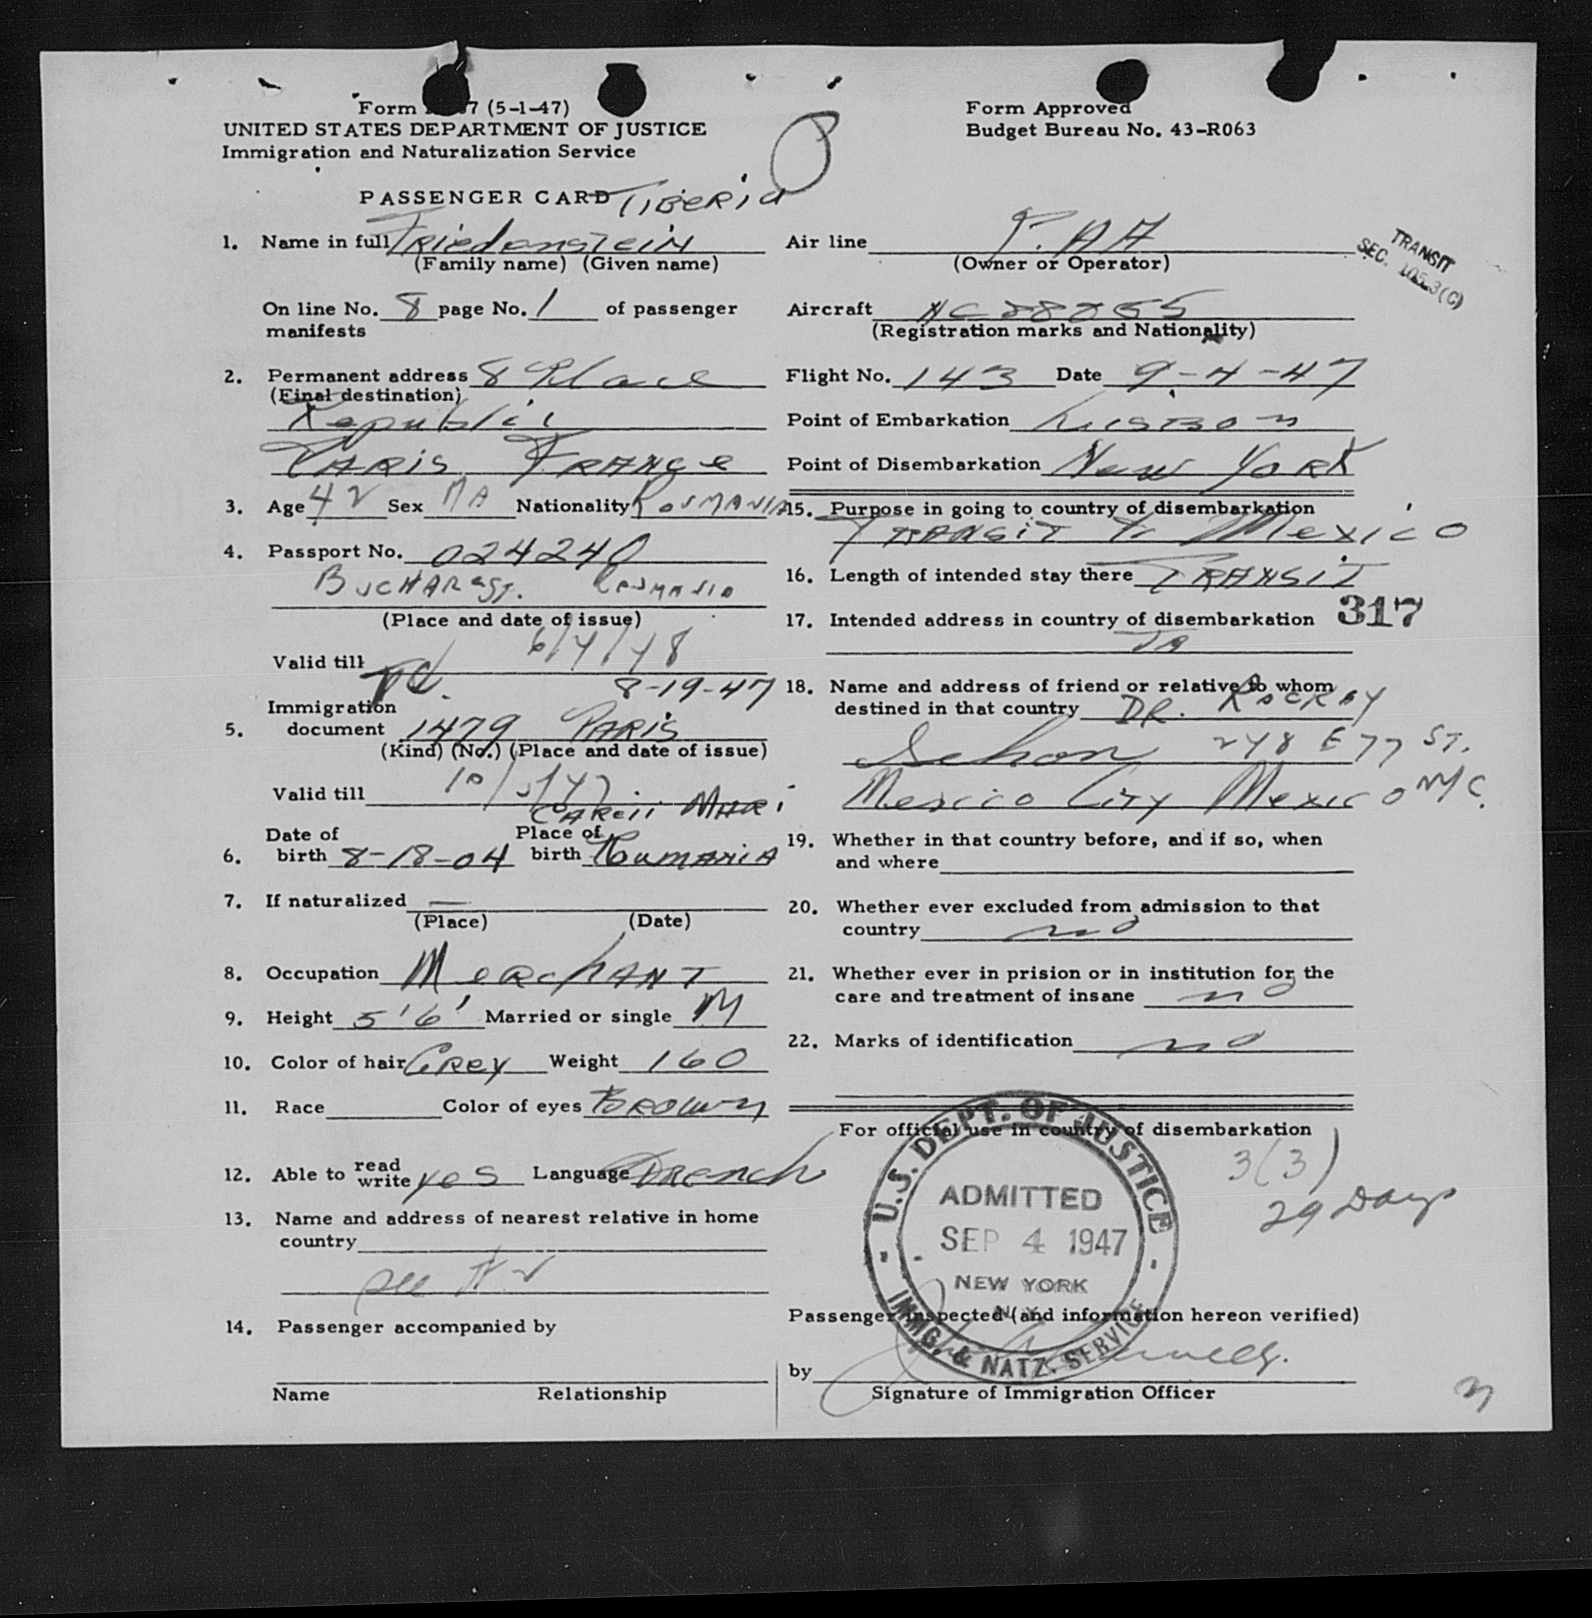 Form 7 (5-1-47)
UNITED STATES DEPARTMENT OF JUSTICE
Immigration and Naturalization Service
Form Approved
Budget Bureau No. 43-R063
PASSENGER CARD
TIBERIU
1. Name in full FRiedenstein
(Family name) (Given name)
On line No. 8 page No. 1 of passenger
manifests
2. Permanent address 8 Place
(Final destination)
Republic
PARIS FRANCE
3. Age 42 Sex MA Nationality ROUMANIA
4. Passport No. 024240
BUCHAREST. ROUMANIA
(Place and date of issue)
Valid till 6/4/48
8-19-47
Immigration
5. document 1479 PARIS
(Kind) (No.) (Place and date of issue)
Valid till
CAREII MARI
Date of Place of
6. birth 8-18-04 birth Rumania
7. If naturalized —
(Place) (Date)
8. Occupation MERCHANT
9. Height 5'6' Married or single M
10. Color of hair GREY Weight 160
11. Race Color of eyes BROWN
12. Able to read write yes Language FRENCH
13. Name and address of nearest relative in home
country
see # 2
14. Passenger accompanied by
Name Relationship
Air line P.A.A
(Owner or Operator)
TRANSIT
SEC. 105.3(C)
Aircraft NC88855
(Registration marks and Nationality)
Flight No. 143 Date 9-4-47
Point of Embarkation LISBON
Point of Disembarkation New York
15. Purpose in going to country of disembarkation
TRANSIT to Mexico
16. Length of intended stay there TRANSIT
17. Intended address in country of disembarkation 317
18. Name and address of friend or relative to whom
destined in that country DR.
248 E 77 ST.
Mexico City Mexico NYC.
19. Whether in that country before, and if so, when
and where
20. Whether ever excluded from admission to that
country no
21. Whether ever in prision or in institution for the
care and treatment of insane no
22. Marks of identification no
For official use in country of disembarkation
3(3)
29 Days
U.S. DEPT. OF JUSTICE
ADMITTED
SEP 4 1947
NEW YORK
N.Y.
IMMG. & NATZ. SERVICE
Passenger inspected (and information hereon verified)
by
Signature of Immigration Officer